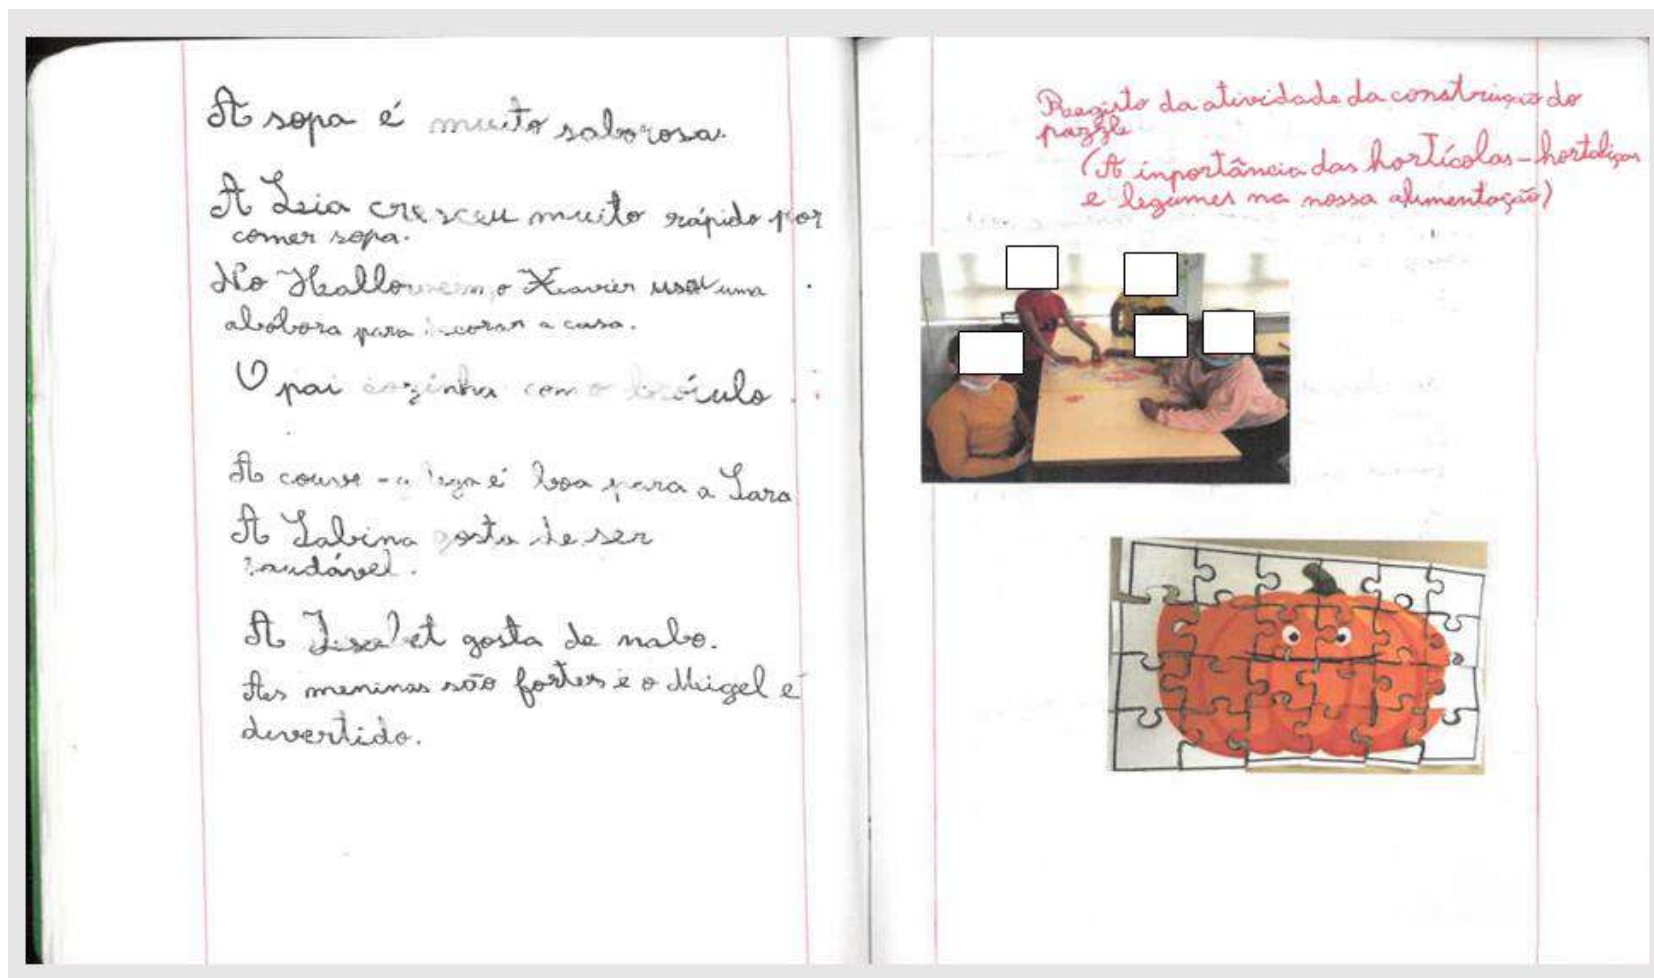 A sopa é muito saborosa.
A Leia cresceu muito rápido por
comer sopa.
No Halloween o Xavier usou uma
abóbora para decorar a casa.
O pai cozinha com o bróculo
A couve-galega é boa para a Sara
A Sabina gosta de ser
saudável.
A gosta de nabo.
As meninas são fortes e o Miigel é
divertido.
Reegisto da atividade da construição do
puzzle
(A inportância das hortícolas-hortaliças
e legumes na nossa alimentação)